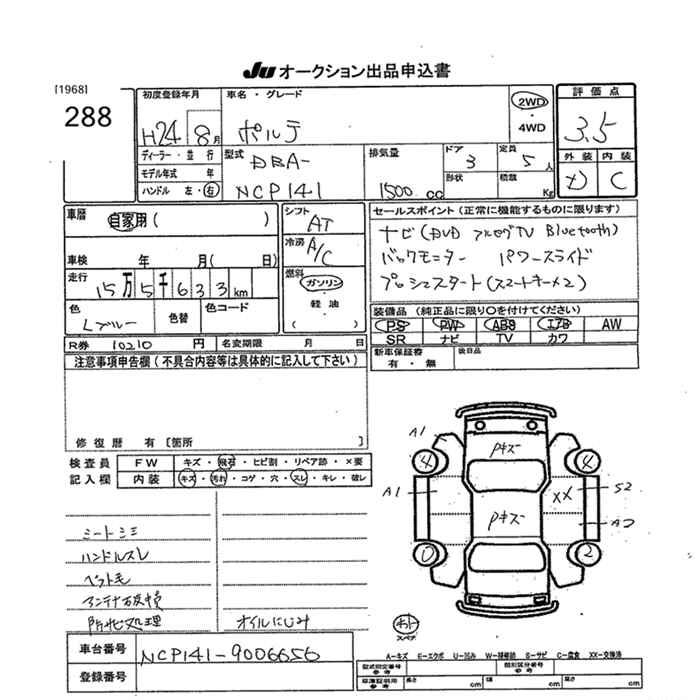 JU オークション出品申込書
[1968]
288
初度登録年月
H24 8月
車名・グレード
ポルテ
2WD
・
4WD
評価点
3.5
外装 内装
C
ディーラー・並行
モデル年式 年
ハンドル 左・右
型式
DBA-
NCP141
排気量
1500 cc
ドア
3
形状
定員
5人
積載
Kg
車歴
自家用 ( )
車検 年 月( 日)
走行
15万5千633km
色
Lブルー
色替
色コード
シフト
AT
冷房
A/C
燃料
ガソリン
・
軽油
・
( )
セールスポイント (正常に機能するものに限ります)
ナビ (DVD フルセグTV Bluetooth)
バックモニター パワースライド
プッシュスタート (スマートキー×2)
装備品 (純正品に限り○を付けてください)
PS PW ABS エアB AW
SR ナビ TV カワ
新車保証書
有・無
後日品
R券 10210 円 名変期限 月 日
注意事項申告欄 (不具合内容等は具体的に記入して下さい)
修復歴 有 [箇所 ]
検査員 FW キズ・飛石・ヒビ割・リペア跡・×要
記入欄 内装 キズ・汚れ・コゲ・穴・スレ・キレ・破レ
シートシミ
ハンドルスレ
ペット毛
アンテナ破損
防犯処理
オイルにじみ
A1
Pキズ
4 4
A1
XX
S2
Pキズ
A2
0 2
スペア
車台番号 NCP141-9006656
登録番号
A-キズ E-エクボ U-凹み W-補修跡 S-サビ C-腐食 XX-交換済
型式指定番号
参考
類別区分番号
参考
車庫証明用
参考
長さ cm 幅 cm 高さ cm